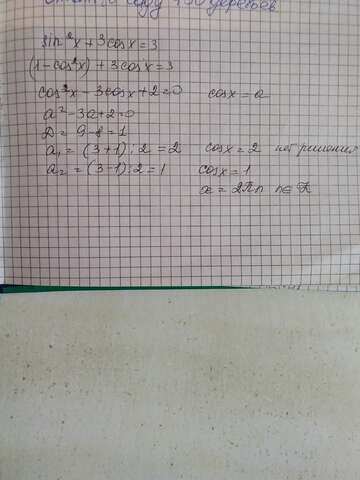 саду 130 деревьев
sin²x + 3cosx = 3
(1 - cos²x) + 3cosx = 3
cos²x - 3cosx + 2 = 0 cosx = a
a² - 3a + 2 = 0
D = 9 - 8 = 1
a₁ = (3+1):2 = 2 cosx = 2 нет решения
a₂ = (3-1):2 = 1 cosx = 1
x = 2πn n∈Z